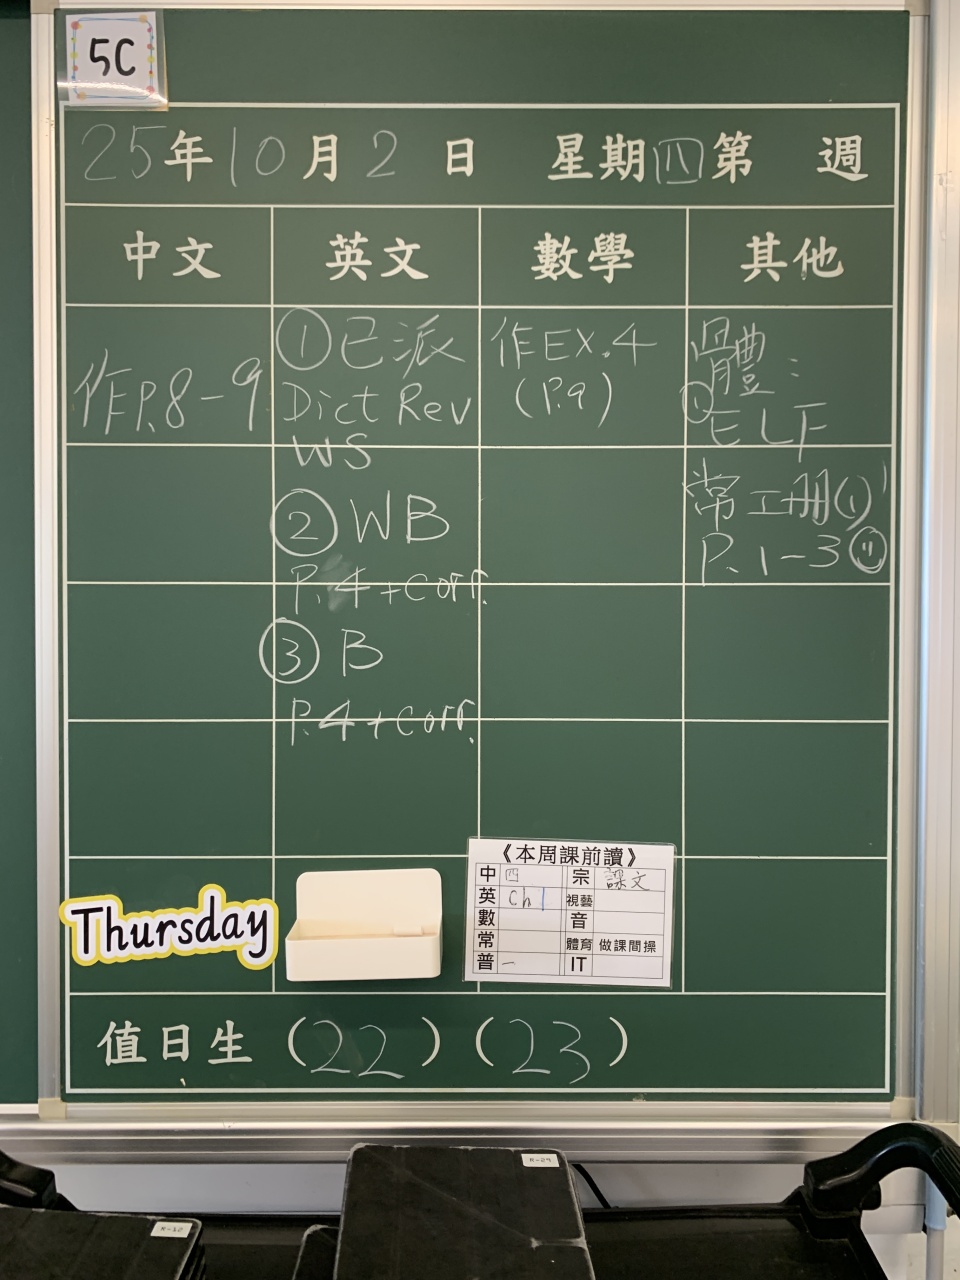 5C
25年10月2日 星期四第 週
中文 英文 數學 其他
作P.8-9
①已派
Dict Rev
WS
②WB
P.4+corr.
③B
P.4+corr.
作EX.4
(P.9)
體:
①ELF
常工册(1)
P.1-3
Thursday
《本周課前讀》
中 四 宗 課文
英 Ch1 視藝
數 音
常 體育 做課間操
普 一 IT
值日生(22)(23)
R-29
R-12